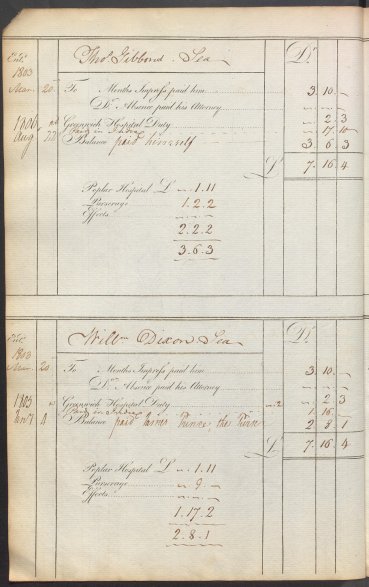 Thos. Gibbons Sea Dr.
1803
20 To Months Impress paid him 3. 10. ~
Do. Absence paid his Attorney ~
1806 Greenwich Hospital Duty ~ 2. 3
Paid in India ~ 17. 10
Augt Balance paid himself 3 6. 3
£ 7. 16. 4
Poplar Hospital £ ~ 1. 11
Purserage 1. 2. 2
Effects
2. 2. 2
3. 6. 3
Willm Dixon Sea Dr.
1803
20 To Months Impress paid him 3. 10. ~
Do. Absence paid his Attorney ~
1805 Greenwich Hospital Duty ~ 2 ~ 2. 3
Paid in India 1. 16. ~
4 Balance paid James the 2 8. 1
£ 7. 16. 4
Poplar Hospital £ ~ 1. 11
Purserage ~ 9. ~
Effects ~ . ~ . ~
1. 17. 2
2. 8. 1